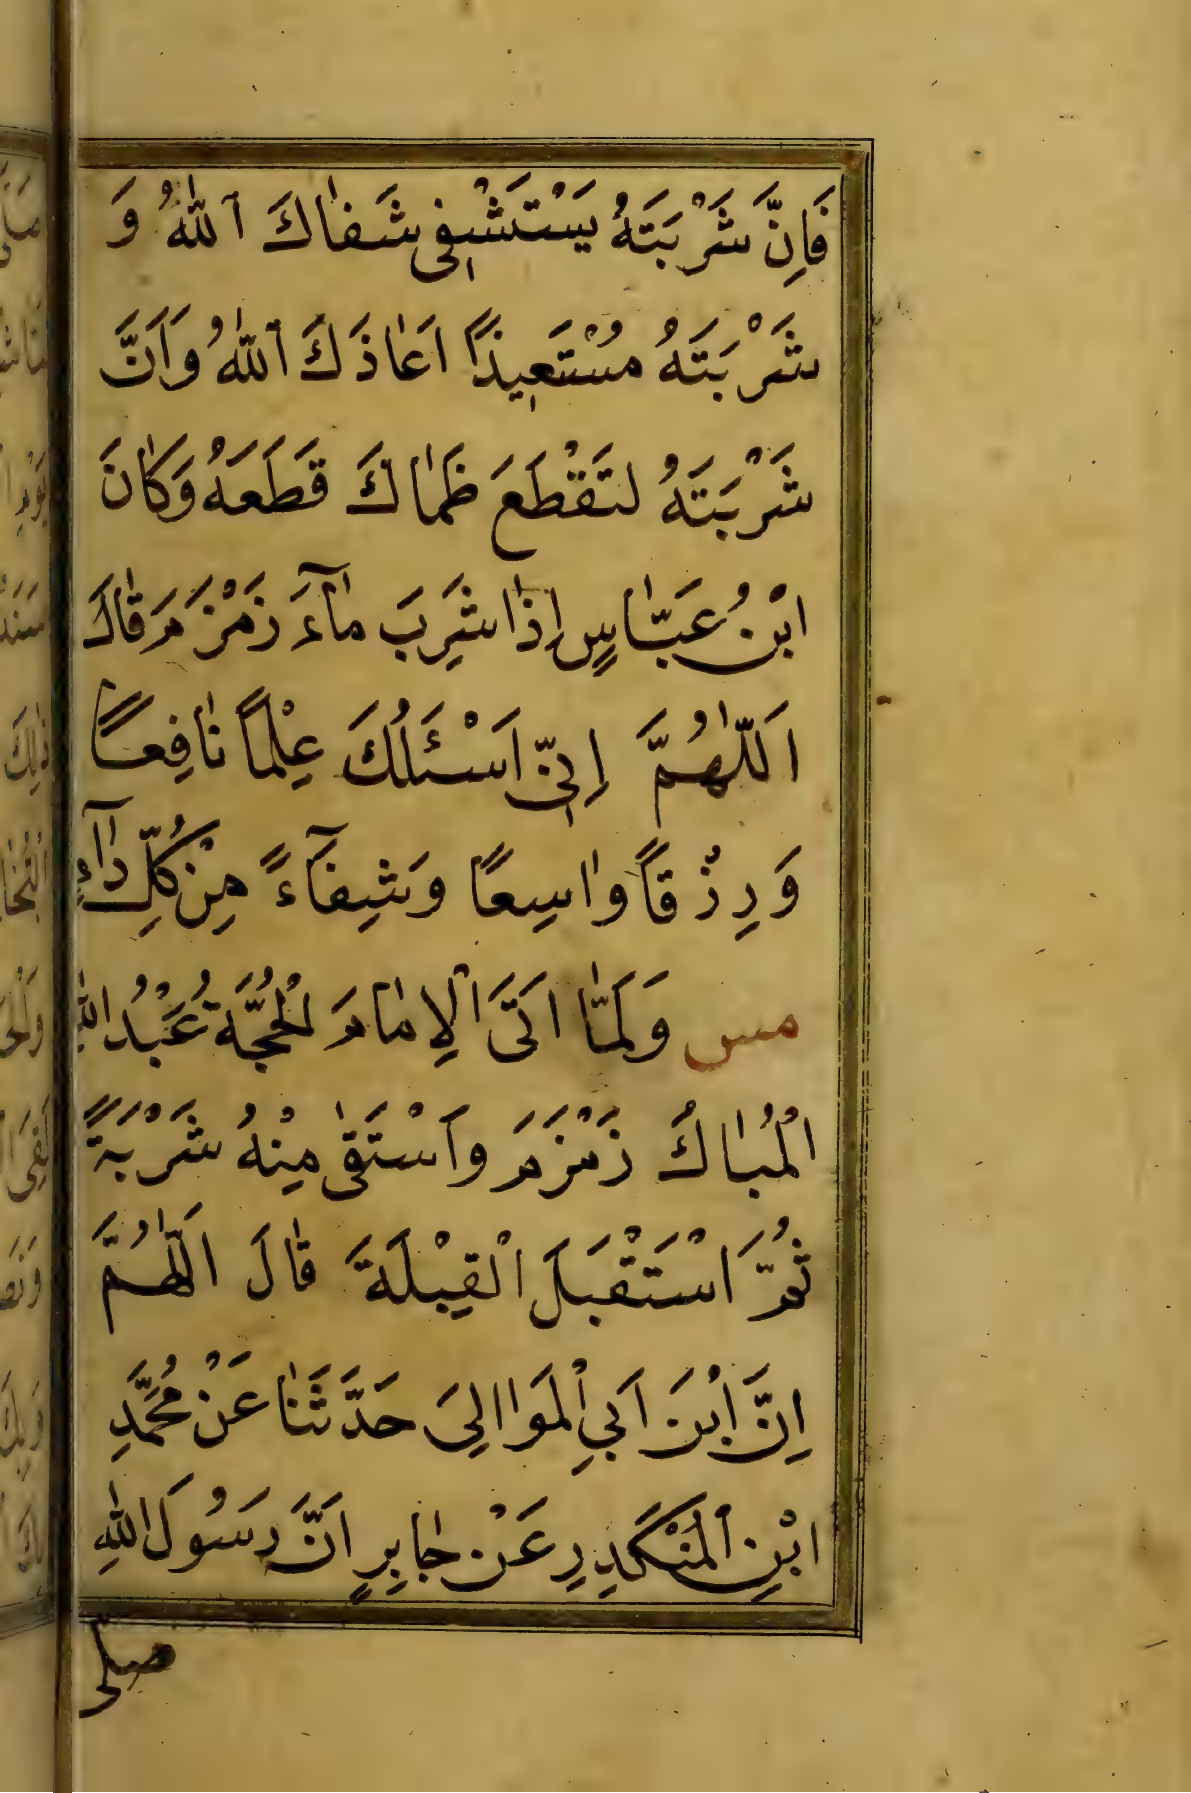 فَاِنَّ شَرْبَتَهُ يَسْتَشْفِي شَفٰاكَ اللّٰهُ وَ
شَرْبَتَهُ مُسْتَعِيذًا اَعٰاذَكَ اللّٰهُ وَاَنَّ
شَرْبَتَهُ لتَقْطَعَ ظَمٰاكَ قَطَعَهُ وَكٰانَ
ابْنُ عَبّٰاسٍ اِذٰا شَرِبَ مٰآءَ زَمْزَمَ قٰالَ
اَللّٰهُمَّ اِنّي اَسْئَلُكَ عِلْمًا نٰافِعًا
وَرِزْقًا وٰاسِعًا وَشِفٰآءً مِنْ كُلِّ دٰآءٍ
مس وَلَمّٰا اَتَى الْاِمٰامَ الْحُجَّةُ عَبْدُ اللّٰهِ
الْمُبٰاكُ زَمْزَمَ وَاَسْتَقٰى مِنْهُ شَرْبَةً
ثُمَّ اسْتَقْبَلَ الْقِيْلَةَ قٰالَ اَللّٰهُمَّ
اِنَّ ابْنَ اَبِي الْمَوَاالِيَ حَدَّثَنٰا عَنْ مُحَمَّدِ
ابْنِ الْمُنْكَدِرِ عَنْ جٰابِرٍ اَنَّ رَسُولَ اللّٰهِ
صلى